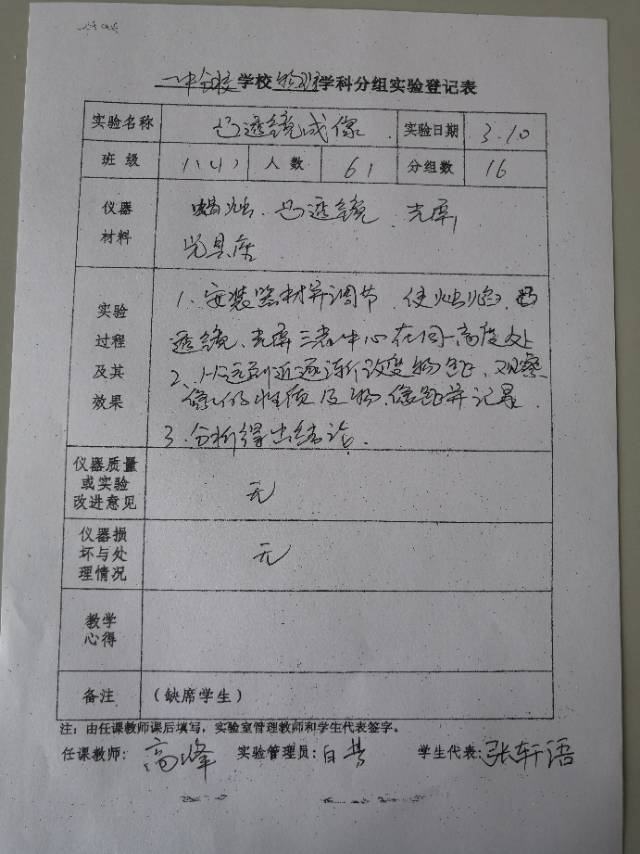 一中分校学校物理学科分组实验登记表
实验名称 凸透镜成像 实验日期 3.10
班级 人数 61 分组数 16
仪器材料 蜡烛、凸透镜、光屏,
光具座
实验过程及其效果 1、安装器材并调节,使烛焰、凸
透镜、光屏三者中心在同一高度处上
2、从远到近逐渐改变物距,观察
像的性质及物、像距并记录.
3、分析得出结论.
仪器质量或实验改进意见 无
仪器损坏与处理情况 无
教学心得
备注 (缺席学生)
注:由任课教师课后填写,实验室管理教师和学生代表签字。
任课教师:高峰 实验管理员:白 学生代表:张轩语